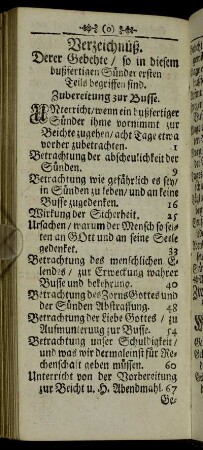 (0)
Verzeichnüß.
Derer Gebehte / so in diesem
bußfertigen Sünder ersten
Teils begriffen sind.
Zubereitung zur Busse.
UNterricht / wenn ein bußfertiger
Sünder ihme vornimmt zur
Beichte zugehen / acht Tage etwa
vorher zubetrachten. 1
Betrachtung der abscheulichkeit der
Sünden. 9
Betrachtung wie gefährlich es sey /
in Sünden zu leben / und an keine
Busse zugedenken. 16
Wirkung der Sicherheit. 25
Ursachen / warum der Mensch so sel-
ten an GOtt und an seine Seele
gedenket. 33
Betrachtung des menschlichen E-
lendes / zur Erweckung wahrer
Busse und bekehrung. 40
Betrachtung des Zorns Gottes und
der Sünden Abstraffung. 48
Betrachtung der Liebe Gottes / zu
Aufmunterung zur Busse. 54
Betrachtung unser Schuldigkeit /
und was wir dermaleinst für Re-
chenschaft geben müssen. 60
Unterricht von der Vorbereitung
zur Beicht u. H. Abendmahl. 67
Ge-